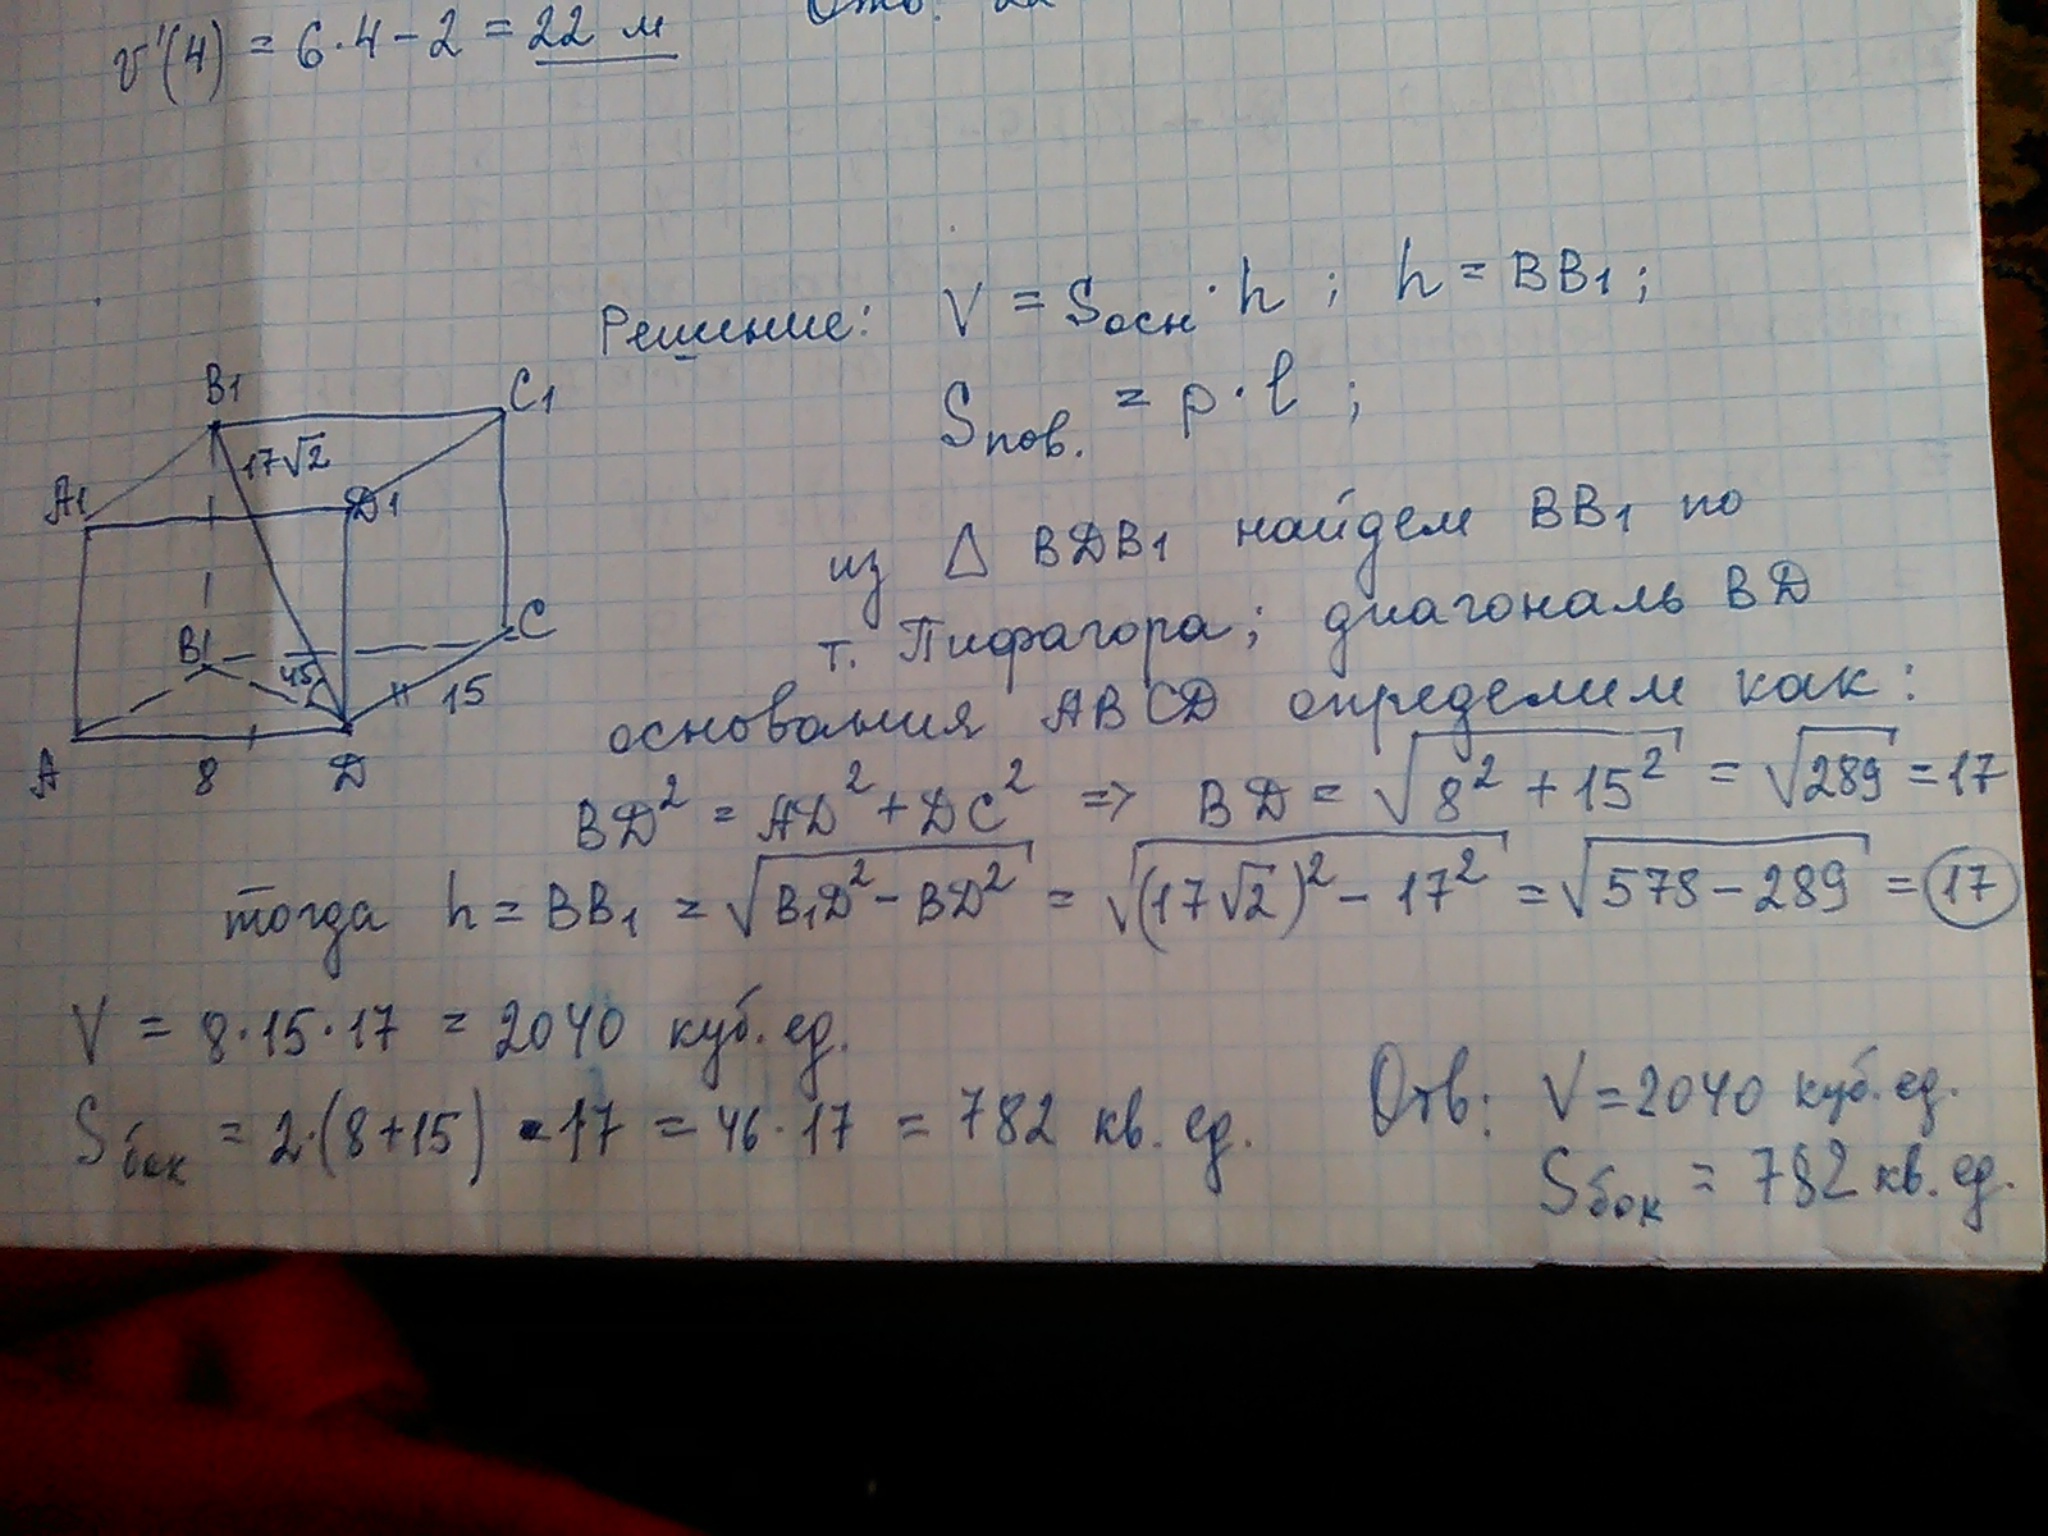 v'(4) = 6·4-2 = 22 м
Решение: V = Sосн·h ; h = BB1 ;
Sпов. = p·l ;
из △ BDB1 найдем BB1 по
т. Пифагора; диагональ BD
основания ABCD определим как:
BD² = AD² + DC² => BD = √8² + 15² = √289 = 17
тогда h = BB1 = √B1D² - BD² = √(17√2)² - 17² = √578 - 289 = 17
V = 8·15·17 = 2040 куб. ед.
Sбок = 2·(8+15)·17 = 46·17 = 782 кв. ед.
Отв: V = 2040 куб. ед.
Sбок = 782 кв. ед.
B1
C1
17√2
A1
D1
B1
C
45
15
A
8
D